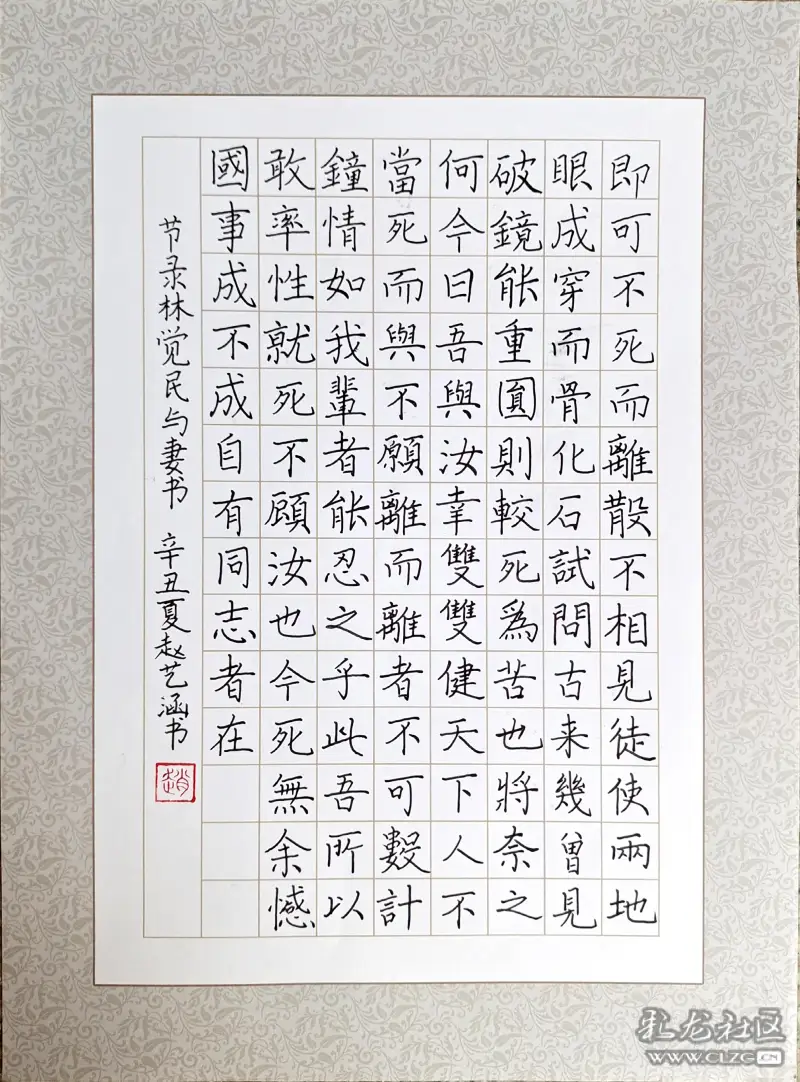 即可不死而離散不相見徒使兩地
眼成穿而骨化石試問古来幾曾見
破鏡能重圓則較死為苦也將奈之
何今日吾與汝幸雙雙健天下人不
當死而與不願離而離者不可數計
鐘情如我輩者能忍之乎此吾所以
敢率性就死不顧汝也今死無余憾
國事成不成自有同志者在
节录林觉民与妻书 辛丑夏赵艺涵书
趙
乳龙社区
WWW.CLZG.CN